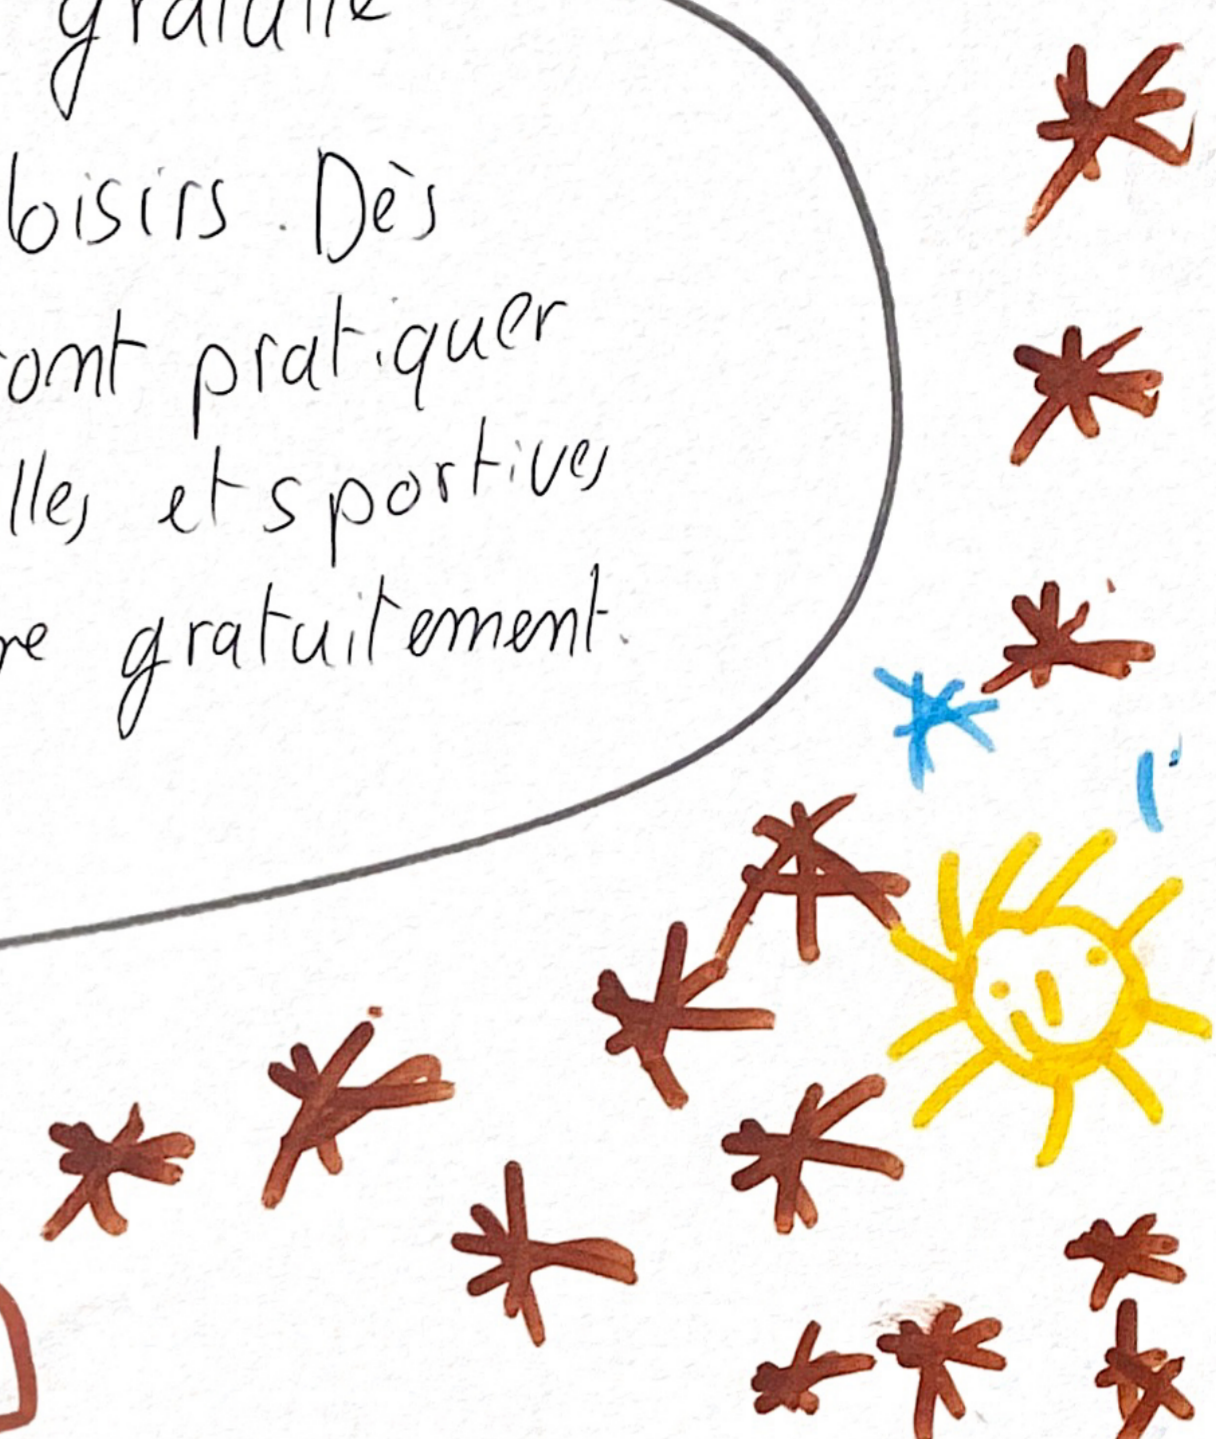 gratuite
loisirs. Dès
ront pratiquer
lles et sportives
re gratuitement.